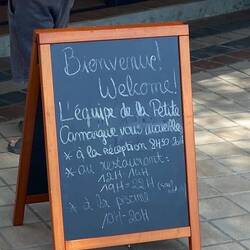 Bienvenue!
Welcome!
L'équipe de la Petite
Camargue vous accueille
* à la réception 8H30 20H
* au restaurant:
12H 14H
19H-22H
* à la piscine
10H-20H